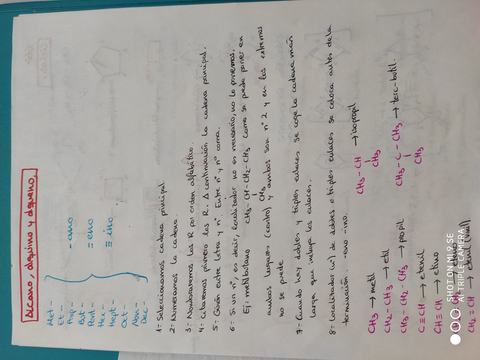 Alcano, alquino y alqueno.
Met -
Et -
Prop -
But -
Pent -
Hex -
Hept -
Oct -
Non -
Dec -
- ano
= eno
≡ ino
1- Seleccionamos cadena principal.
2- Numeramos la cadena.
3- Nombraremos los R por orden alfabético.
4- Citaremos primero los R. A continuación la cadena principal.
5- Guión entre letra y nº. Entre nº y nº coma.
6- Si un nº, es decir, localizador no es necesario, no lo ponemos.
Ej: metilbutano CH3-CH-CH2-CH3 Como se puede poner en
CH3
ambos lugares (centro) y ambos son nº 2 y en los extremos
no se puede.
7- Cuando hay dobles y triples enlaces se coge la cadena más
larga que incluya los enlaces.
8- Localizador (nº) de dobles o triples enlaces se coloca antes de la
terminación -eno -ino.
CH3 → metil
CH2 - CH3 → etil
CH2 - CH2 - CH3 → propil
C ≡ CH → etinil
CH ≡ CH → etino
CH3 - CH → isopropil
CH3
CH3 - C - CH3 → terc-butil
CH3
MI 9 SE
AI TRIPLE CAMERA